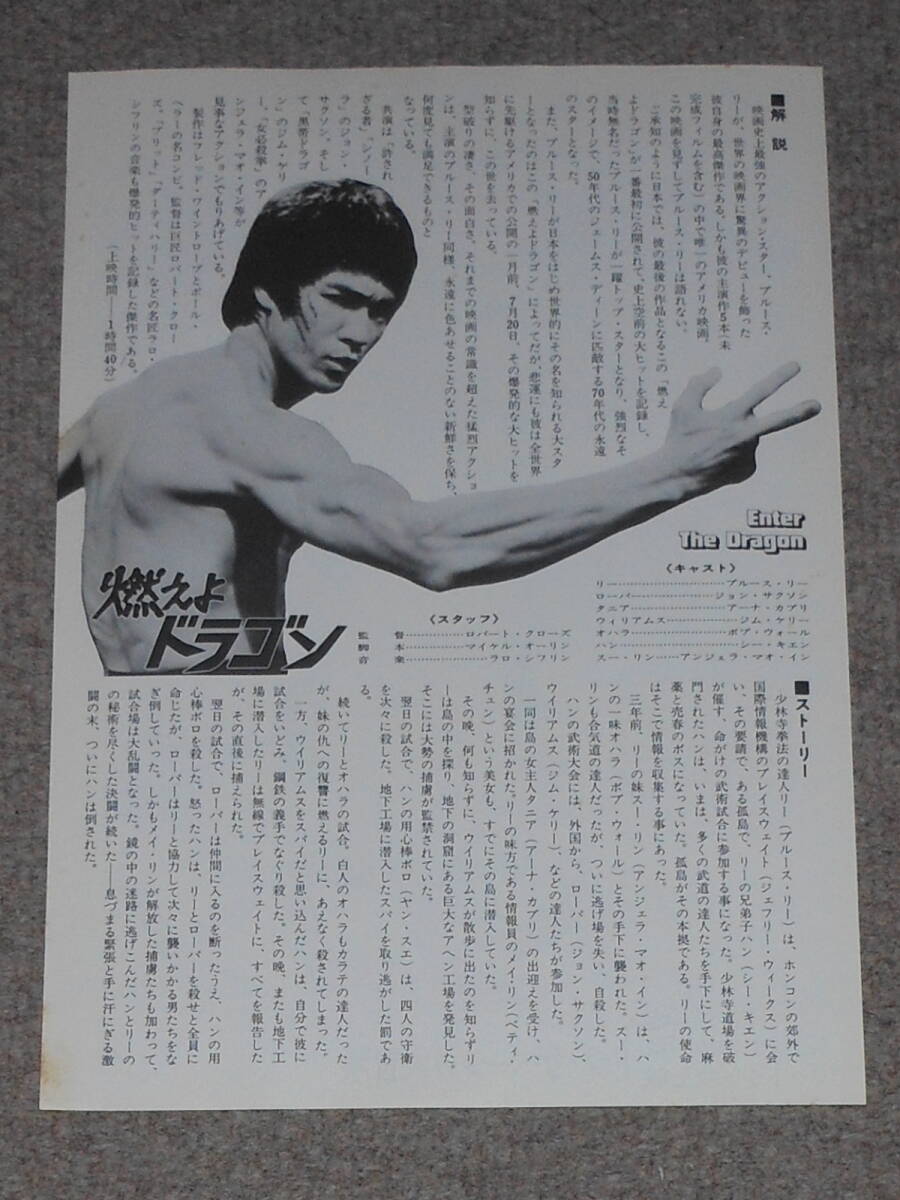 ■解説
映画史上最強のアクション・スター、ブルース・
リーが、世界の映画界に驚異のデビューを飾った
彼自身の最高傑作である。しかも彼の主演作5本（未
完成フィルムを含む）の中で唯一のアメリカ映画。
この映画を見ずしてブルース・リーは語れない。
ご承知のように日本では、彼の最後の作品となるこの「燃え
よドラゴン」が一番最初に公開されて、史上空前の大ヒットを記録し、
当時無名だったブルース・リーが一躍トップ・スターとなり、強烈なそ
のイメージで、50年代のジェームス・ディーンに匹敵する70年代の永遠
のスターとなった。
また、ブルース・リーが日本をはじめ世界的にその名を知られる大スタ
ーとなったのはこの「燃えよドラゴン」によってだが、悲運にも彼は全世界
に先駆けるアメリカでの公開の一月前、7月20日、その爆発的な大ヒットを
知らずに、この世を去っている。
型破りの凄さ、その面白さ、それまでの映画の常識を超えた猛烈アクショ
ンは、主演のブルース・リー同様、永遠に色あせることのない新鮮さを保ち、
何度見ても満足できるものと
なっている。
共演は「許され
ざる者」「シノーラ」のジョン・
サクソン、そし
て「黒帯ドラゴ
ン」のジム・ケリ
ー、「女必殺拳」のア
ンジェラ・マオ・イン等が
見事なアクションでもりあげている。
製作はフレッド・ワイントロープとポール・
ヘラーの名コンビ、監督は巨匠ロバート・クロー
ズ、「ブリット」「ダーティハリー」などの名匠ラロ・
シフリンの音楽も爆発的ヒットを記録した傑作である。
（上映時間──1時間40分）
Enter
The Dragon
燃えよ
ドラゴン
《キャスト》
リー…………ブルース・リー
ローパー…………ジョン・サクソン
タニア…………アーナ・カプリ
ウィリアムス…………ジム・ケリー
オハラ…………ボブ・ウォール
ハン…………シー・キエン
スー・リン…………アンジェラ・マオ・イン
《スタッフ》
監督…………ロバート・クローズ
脚本…………マイケル・オーリン
音楽…………ラロ・シフリン
■ストーリー
少林寺拳法の達人リー（ブルース・リー）は、ホンコンの郊外で
国際情報機構のブレイスウェイト（ジェフリー・ウィークス）に会
い、その要請で、ある孤島で、リーの兄弟子ハン（シー・キエン）
が催す、命がけの武術試合に参加する事になった。少林寺道場を破
門されたハンは、いまは、多くの武道の達人たちを手下にして、麻
薬と売春のボスになっていた。孤島がその本拠である。リーの使命
はそこで情報を収集する事にあった。
三年前、リーの妹スー・リン（アンジェラ・マオ・イン）は、ハ
ンの一味オハラ（ボブ・ウォール）とその手下に襲われた。スー・
リンも合気道の達人だったが、ついに逃げ場を失い、自殺した。
ハンの武術大会には、外国から、ローパー（ジョン・サクソン）、
ウイリアムス（ジム・ケリー）、などの達人たちが参加した。
一同は島の女主人タニア（アーナ・カプリ）の出迎えを受け、ハ
ンの宴会に招かれた。リーの味方である情報員のメイ・リン（ベティ・
チュン）という美女も、すでにその島に潜入していた。
その晩、何も知らずに、ウイリアムスが散歩に出たのを知らずリ
ーは島の中を探り、地下の洞窟にある巨大なアヘン工場を発見した。
そこには大勢の捕虜が監禁されていた。
翌日の試合で、ハンの用心棒ボロ（ヤン・スエ）は、四人の守衛
を次々に殺した。地下工場に潜入したスパイを取り逃がした罰であ
る。
続いてリーとオハラの試合。白人のオハラもカラテの達人だった
が、妹の仇への復讐に燃えるリーに、あえなく殺されてしまった。
一方、ウイリアムスをスパイだと思い込んだハンは、自分で彼に
試合をいどみ、鋼鉄の義手でなぐり殺した。その晩、またも地下工
場に潜入したリーは無線でブレイスウェイトに、すべてを報告した
が、その直後に捕えられた。
翌日の試合で、ローパーは仲間に入るのを断ったうえ、ハンの用
心棒ボロを殺した。怒ったハンは、リーとローパーを殺せと全員に
命じたが、ローパーはリーと協力して次々に襲いかかる男たちをな
ぎ倒していった。しかもメイ・リンが解放した捕虜たちも加わって、
試合場は大乱闘となった。鏡の中の迷路に逃げこんだハンとリーの
の秘術を尽くした決闘が続いた──息づまる緊張と手に汗にぎる激
闘の末、ついにハンは倒された。